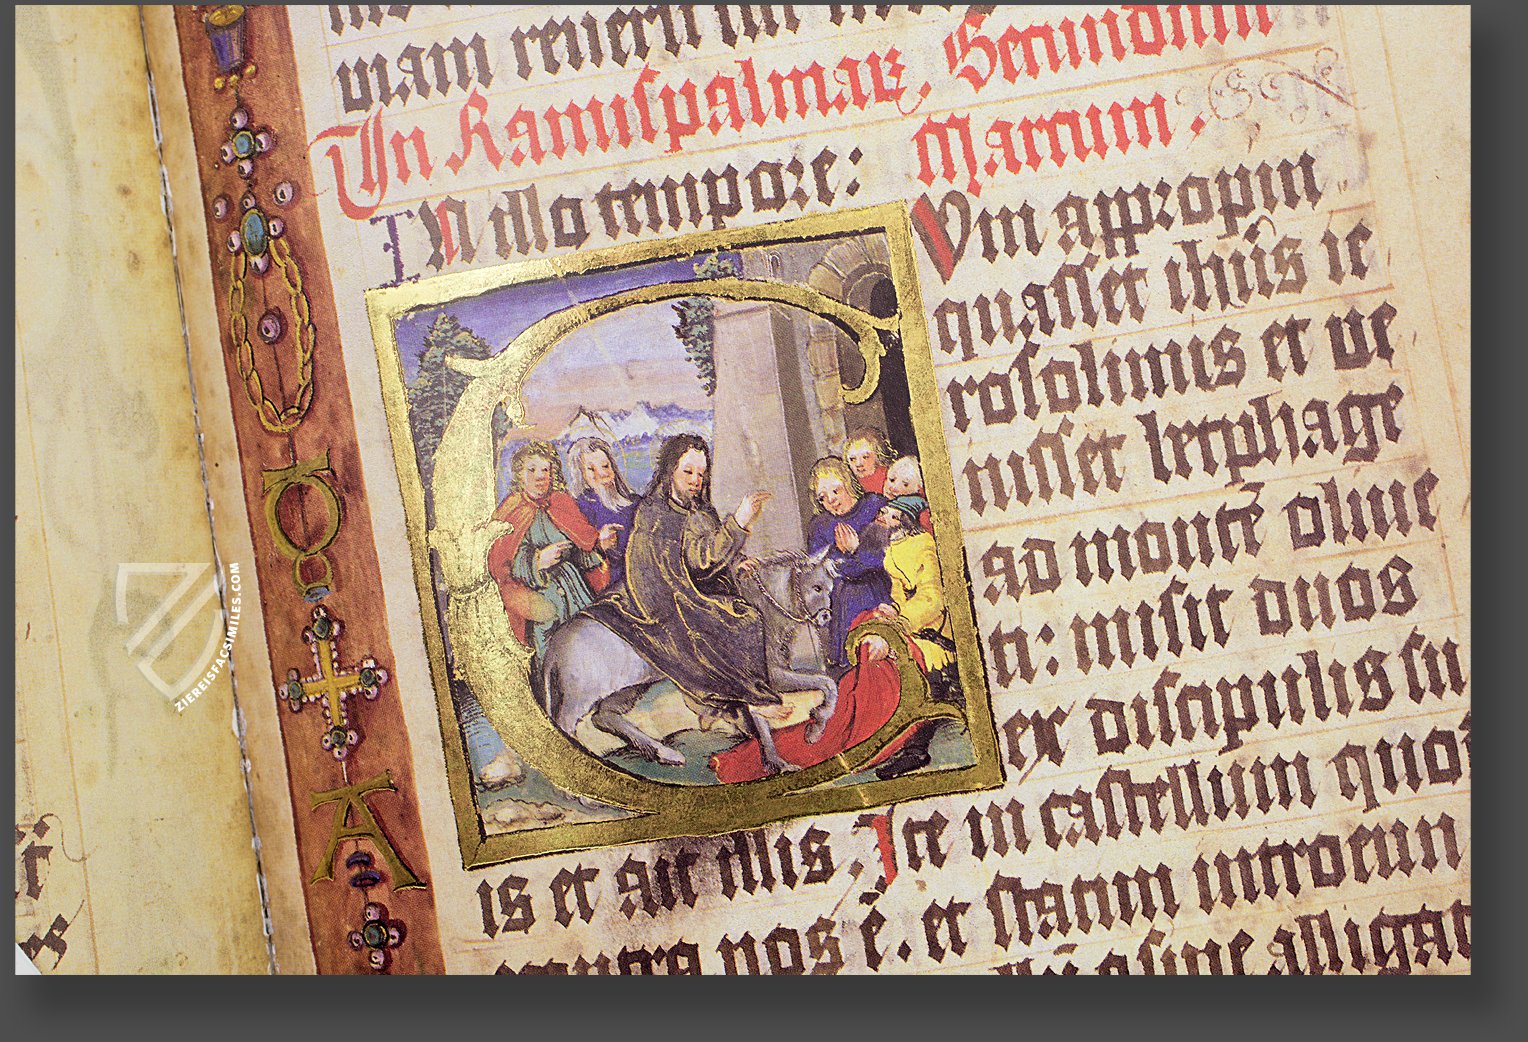 uiam reuerti
In Ramispalmaꝝ, Secundum
Marcum.
IN illo tempore:
Vm appropin
quasset ihūs ie
rosolimis et ue
nisset betphage
ad montē oliue
ti: misit duos
ex discipulis su
is et ait illis. Ite in castellum quod
nos ē. et statim introeun
alligat
ZIEREISFACSIMILES.COM